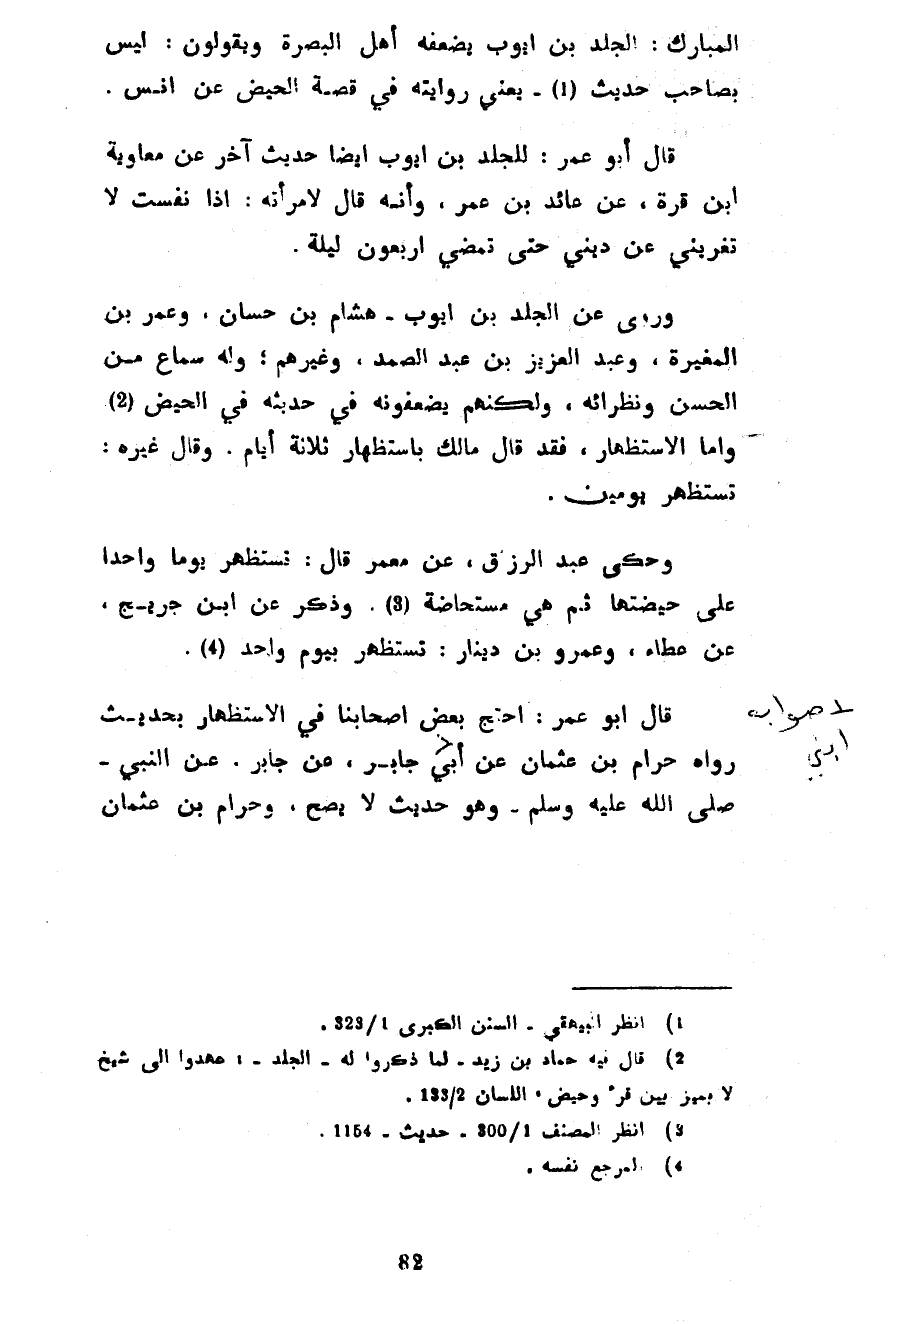 المبارك : الجلد بن ايوب يضعفه أهل البصرة ويقولون : ليس
بصاحب حديث (1) ـ يعني روايته في قصة الحيض عن انس .
قال أبو عمر : للجلد بن ايوب ايضا حديث آخر عن معاوية
ابن قرة ، عن عائد بن عمر ، وأنه قال لامرأته : اذا نفست لا
تغريني عن ديني حتى تمضي اربعون ليلة .
وروى عن الجلد بن ايوب ـ هشام بن حسان ، وعمر بن
المغيرة ، وعبد العزيز بن عبد الصمد ، وغيرهم ؛ وله سماع من
الحسن ونظرائه ، ولكنهم يضعفونه في حديثه في الحيض (2)
واما الاستظهار ، فقد قال مالك باستظهار ثلاثة أيام . وقال غيره :
تستظهر يومين .
وحكى عبد الرزق ، عن معمر قال : تستظهر يوما واحدا
على حيضتها ثم هي مستحاضة (3) . وذكر عن ابن جريج ،
عن عطاء ، وعمرو بن دينار : تستظهر بيوم واحد (4) .
قال ابو عمر : احتج بعض اصحابنا في الاستظهار بحديث
صوابه
رواه حرام بن عثمان عن أبي جابر ، عن جابر . عن النبي ـ
ابني
صلى الله عليه وسلم ـ وهو حديث لا يصح ، وحرام بن عثمان
1) انظر البيهقي ـ السنن الكبرى 323/1 .
2) قال فيه حماد بن زيد ـ لما ذكروا له ـ الجلد ـ : عهدوا الى شيخ
لا يميز بين قرء وحيض ، اللسان 133/2 .
3) انظر المصنف 300/1 ـ حديث ـ 1154 .
4) المرجع نفسه .
82